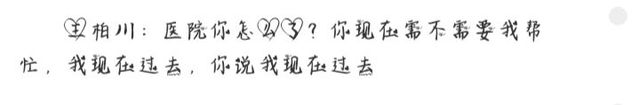 王柏川：医院你怎么了？你现在需不需要我帮
忙，我现在过去，你说我现在过去